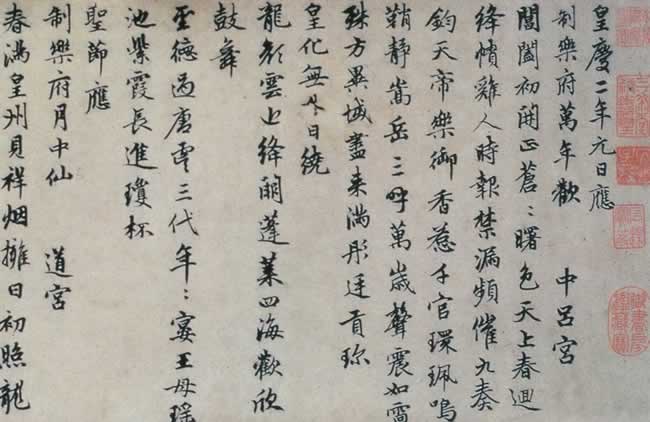 皇慶二年元日應
制樂府萬年歡 中呂宮
閶闔初開正蒼〻曙色天上春迴
絳幘雞人時報禁漏頻催九奏
鈞天帝樂御香惹千官環珮鳴
鞘靜嵩岳三呼萬歲聲震如雷
殊方異域盡来滿彤廷貢珍
皇化無外日繞
龍顏雲近絳闕蓬萊四海歡欣
鼓舞
聖德過唐虞三代年〻宴王母瑤
池紫霞長進瓊杯
聖節應
制樂府月中仙 道宮
春滿皇州見祥烟擁日初照龍